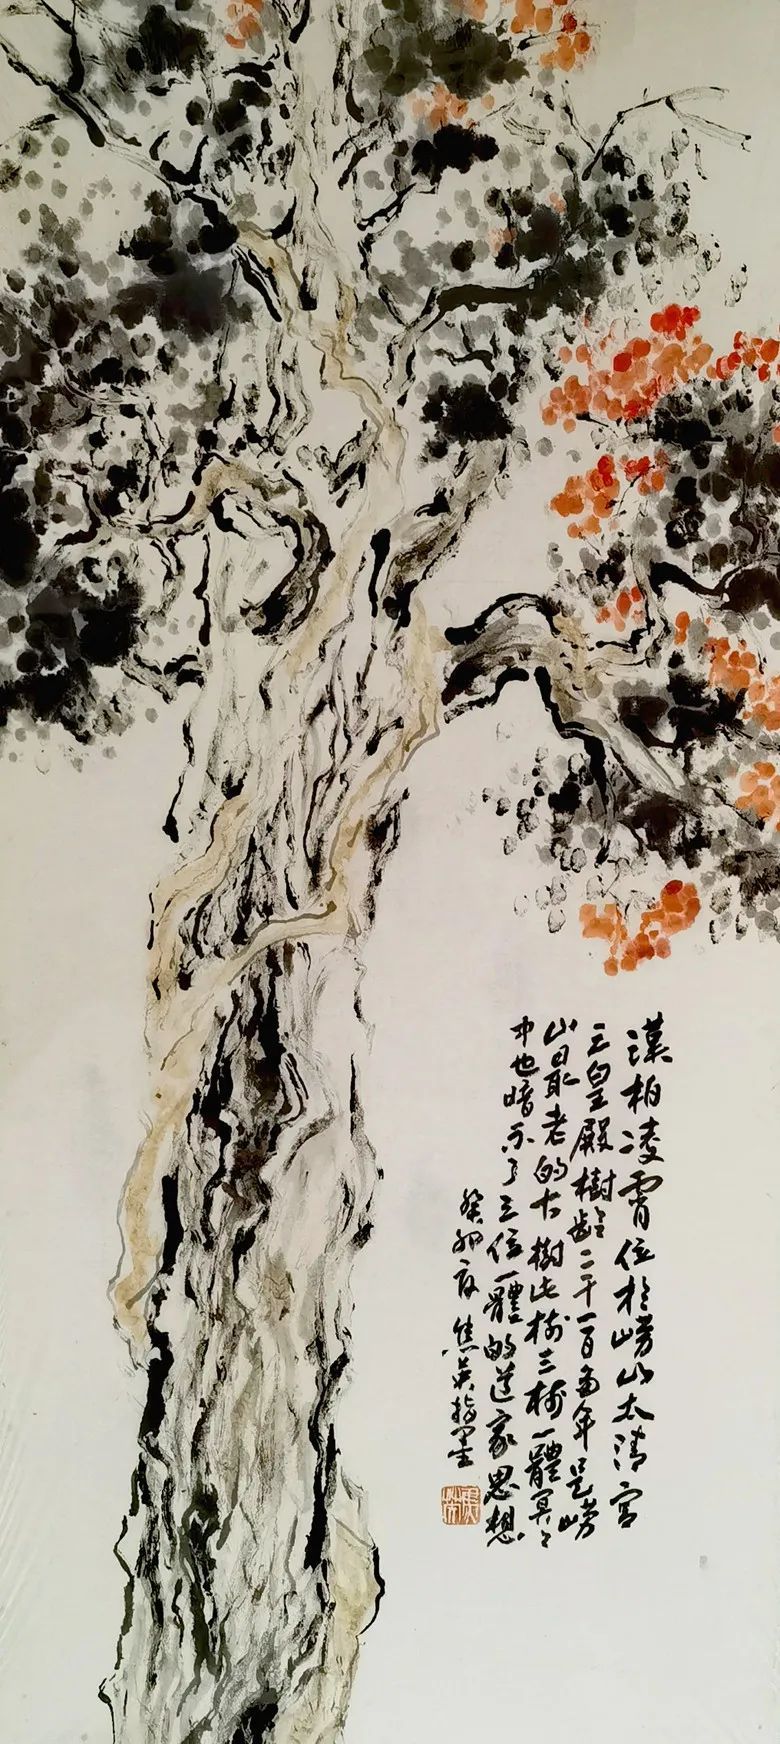 漢柏凌霄位於嶗山太清宮
三皇殿樹齡二千一百多年是嶗
山最老的大樹此樹三樹一體冥冥
中也暗示了三位一體的道家思想
癸卯夜焦英指墨